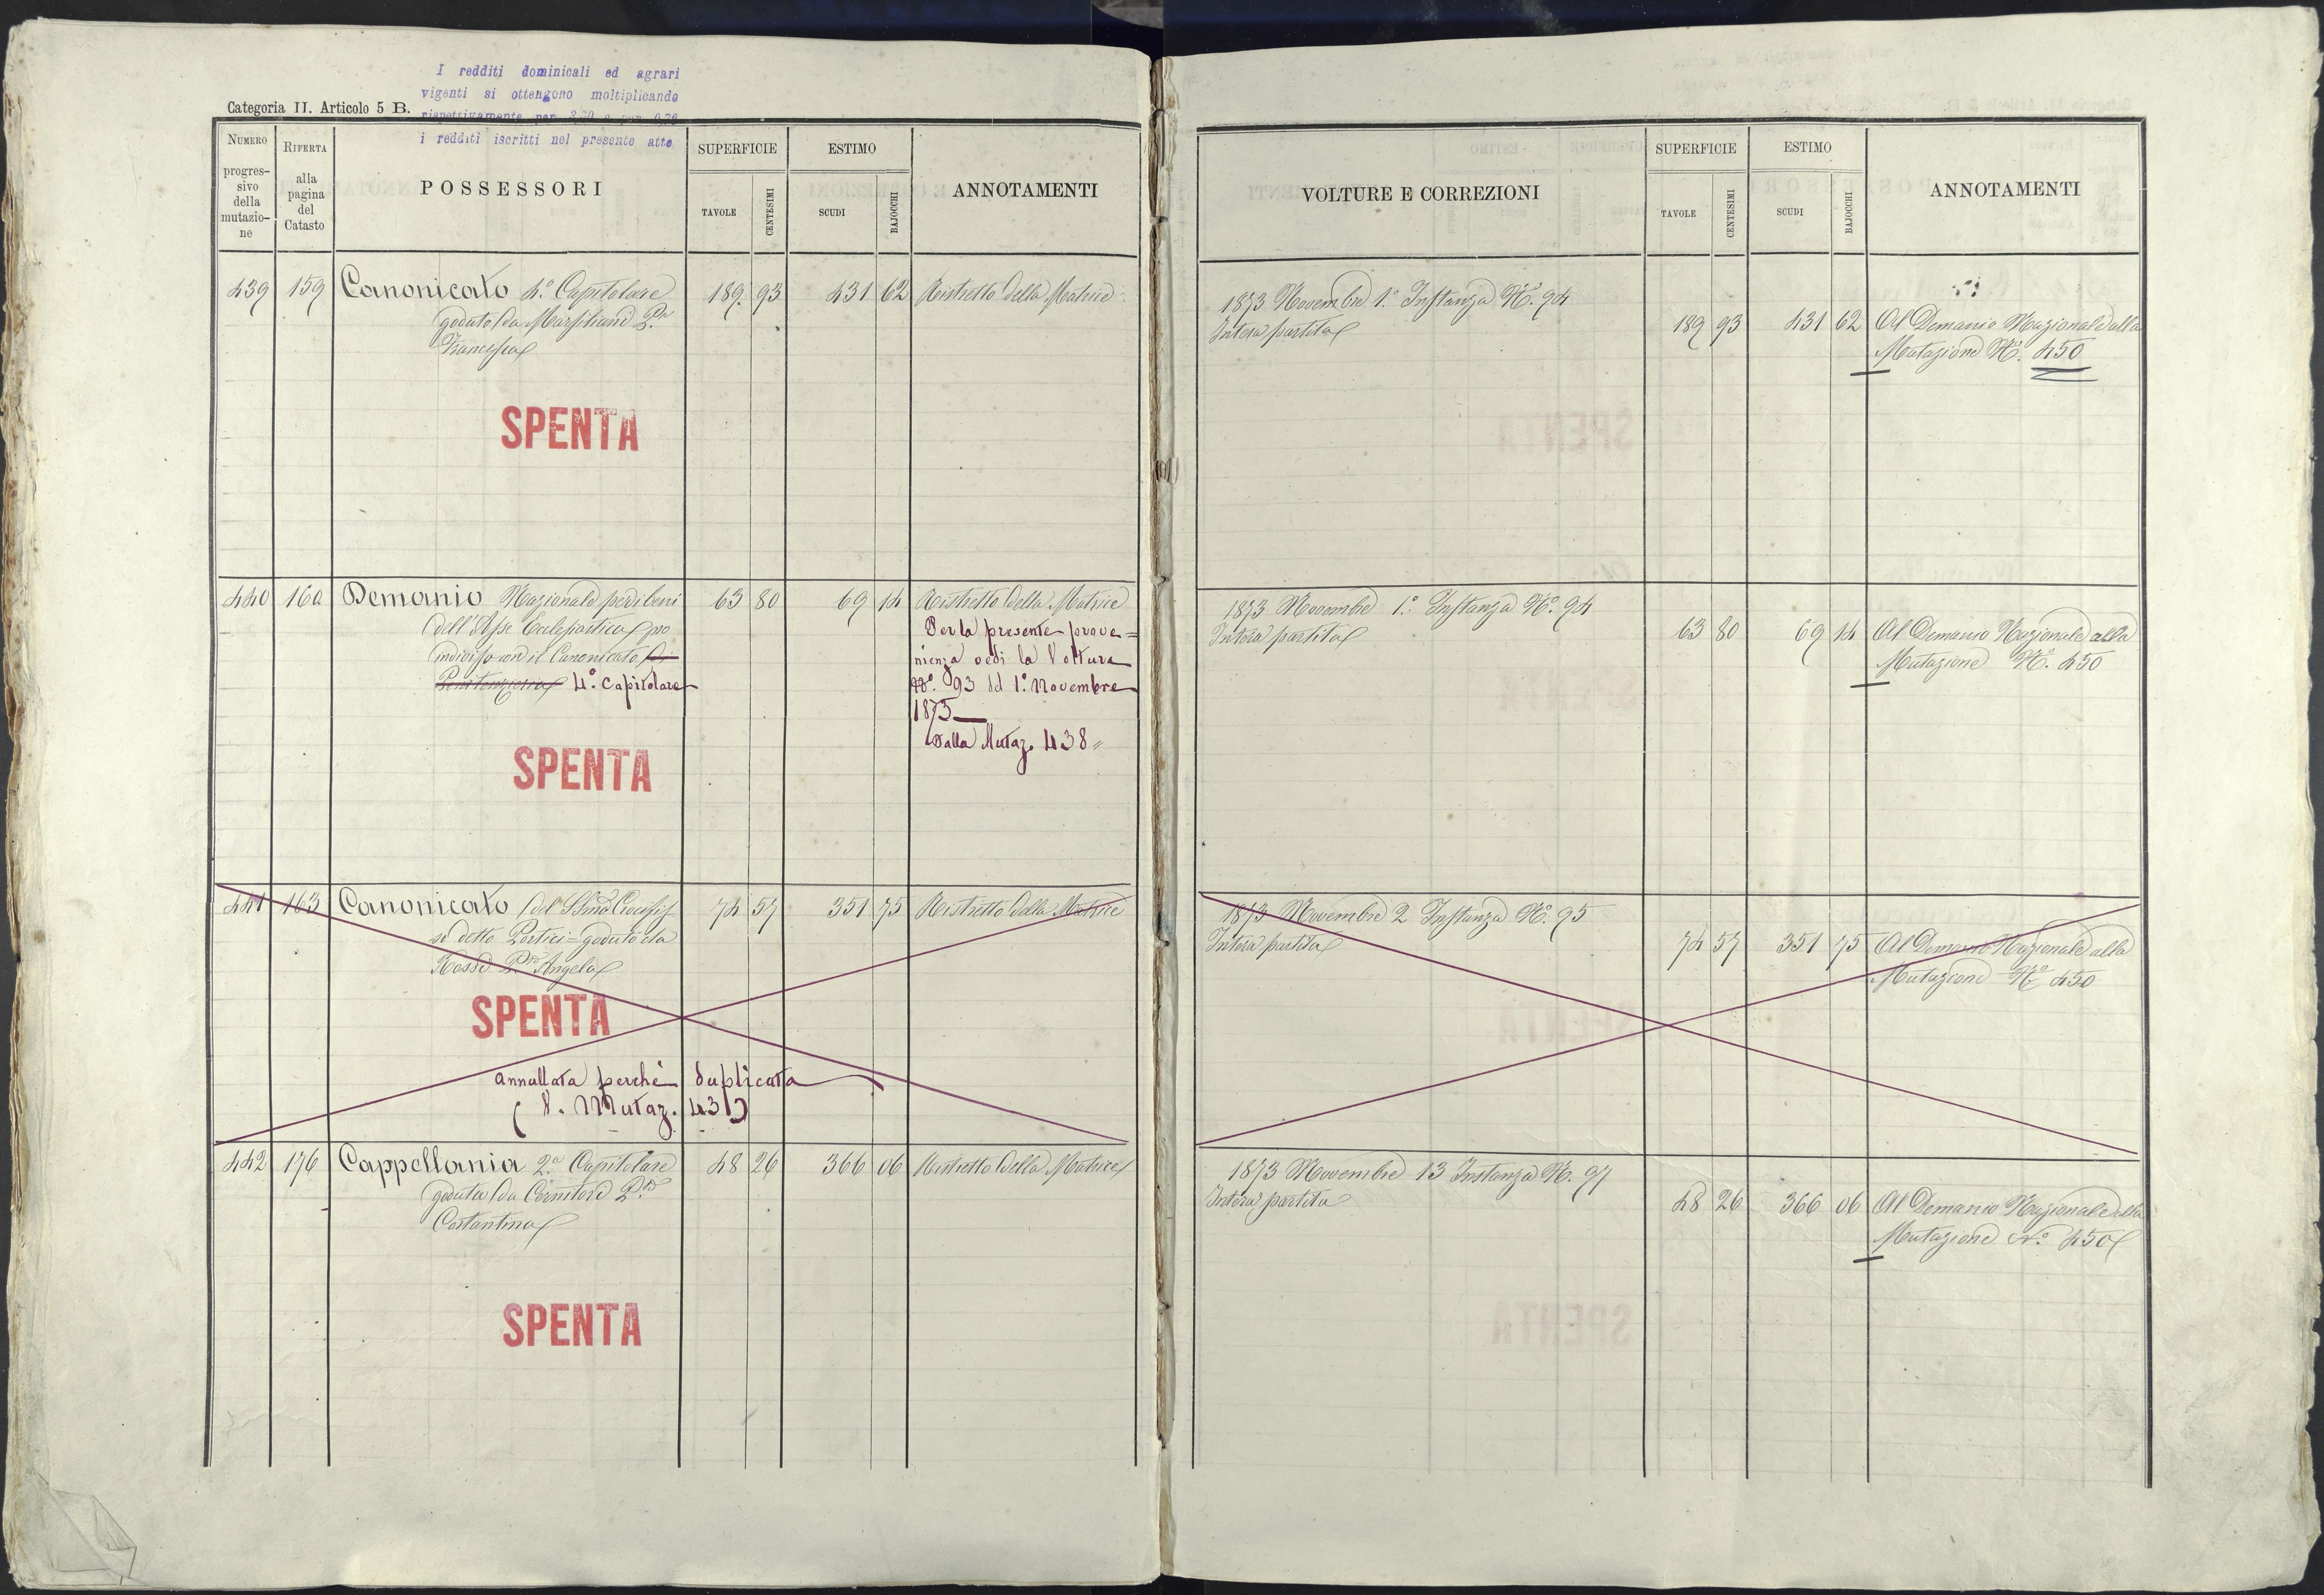 I redditi dominicali ed agrari
vigenti si ottengono moltiplicando
rispettivamente per 3,60 e per 0,76
i redditi iscritti nel presente atto
Categoria II. Articolo 5 B.
NUMERO progressivo della mutazione
RIFERTA alla pagina del Catasto
POSSESSORI
SUPERFICIE
TAVOLE
CENTESIMI
ESTIMO
SCUDI
BAJOCCHI
ANNOTAMENTI
439 159 Canonicato 4.° Capitolare 189. 93 431 62 Ristretto della Matrice
goduto da Marsiliani
Francesco
SPENTA
440 160 Demanio Nazionale per i beni 63 80 69 14 Ristretto della Matrice
dell'Asse Ecclesiastico pro
indiviso con il Canonicato di
Penitenziera 4.° Capitolare
Per la presente prove=
nienza vedi la Voltura
N.° 93 del 1.° Novembre
1873
Dalla Mutaz. 438 "
SPENTA
441 163 Canonicato del SSmo Crocifis 74 57 351 75 Ristretto della Matrice
so detto Portici = goduto da
Rosso Angelo
SPENTA
annullata perchè duplicata
( V. Mutaz. 431)
442 176 Cappellania 2.a Capitolare 48 26 366 06 Ristretto della Matrice
goduta da
Costantino
SPENTA
VOLTURE E CORREZIONI
SUPERFICIE
TAVOLE
CENTESIMI
ESTIMO
SCUDI
BAJOCCHI
ANNOTAMENTI
1873 Novembre 1.° Instanza N.° 94
Intera partita 189 93 431 62 Al Demanio Nazionale alla
Mutazione N.° 450
1873 Novembre 1.° Instanza N.° 94
Intera partita 63 80 69 14 Al Demanio Nazionale alla
Mutazione N.° 450
1873 Novembre 2 Instanza N.° 95
Intera partita 74 57 351 75 Al Demanio Nazionale alla
Mutazione N.° 450
1873 Novembre 13 Instanza N. 97
Intera partita 48 26 366 06 Al Demanio Nazionale alla
Mutazione N.° 450